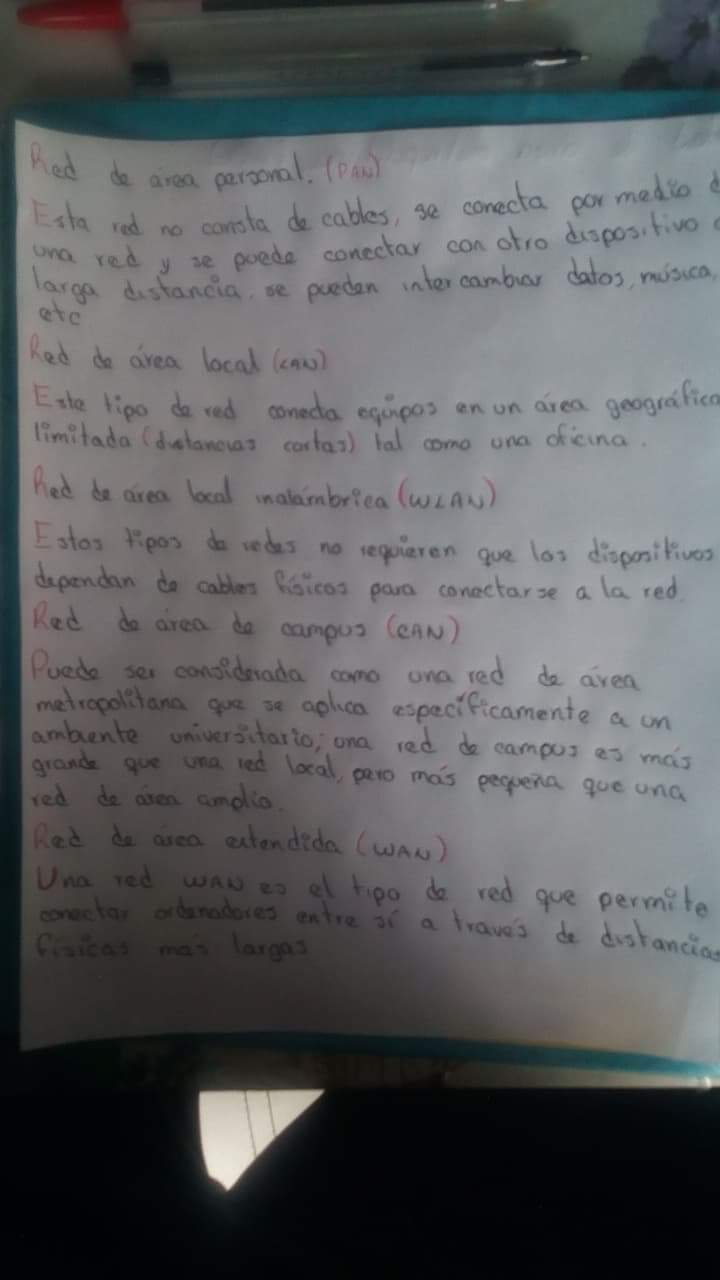 Red de área personal. (PAN)
Esta red no consta de cables, se conecta por medio d
una red y se puede conectar con otro dispositivo a
larga distancia, se pueden intercambiar datos, música,
etc
Red de área local (LAN)
Este tipo de red conecta equipos en un área geográfica
limitada (distancias cortas) tal como una oficina.
Red de área local inalámbrica (WLAN)
Estos tipos de redes no requieren que los dispositivos
dependan de cables físicos para conectarse a la red.
Red de área de campus (CAN)
Puede ser considerada como una red de área
metropolitana que se aplica específicamente a un
ambiente universitario, una red de campus es más
grande que una red local, pero más pequeña que una
red de área amplia.
Red de área extendida (WAN)
Una red WAN es el tipo de red que permite
conectar ordenadores entre sí a través de distancias
físicas más largas